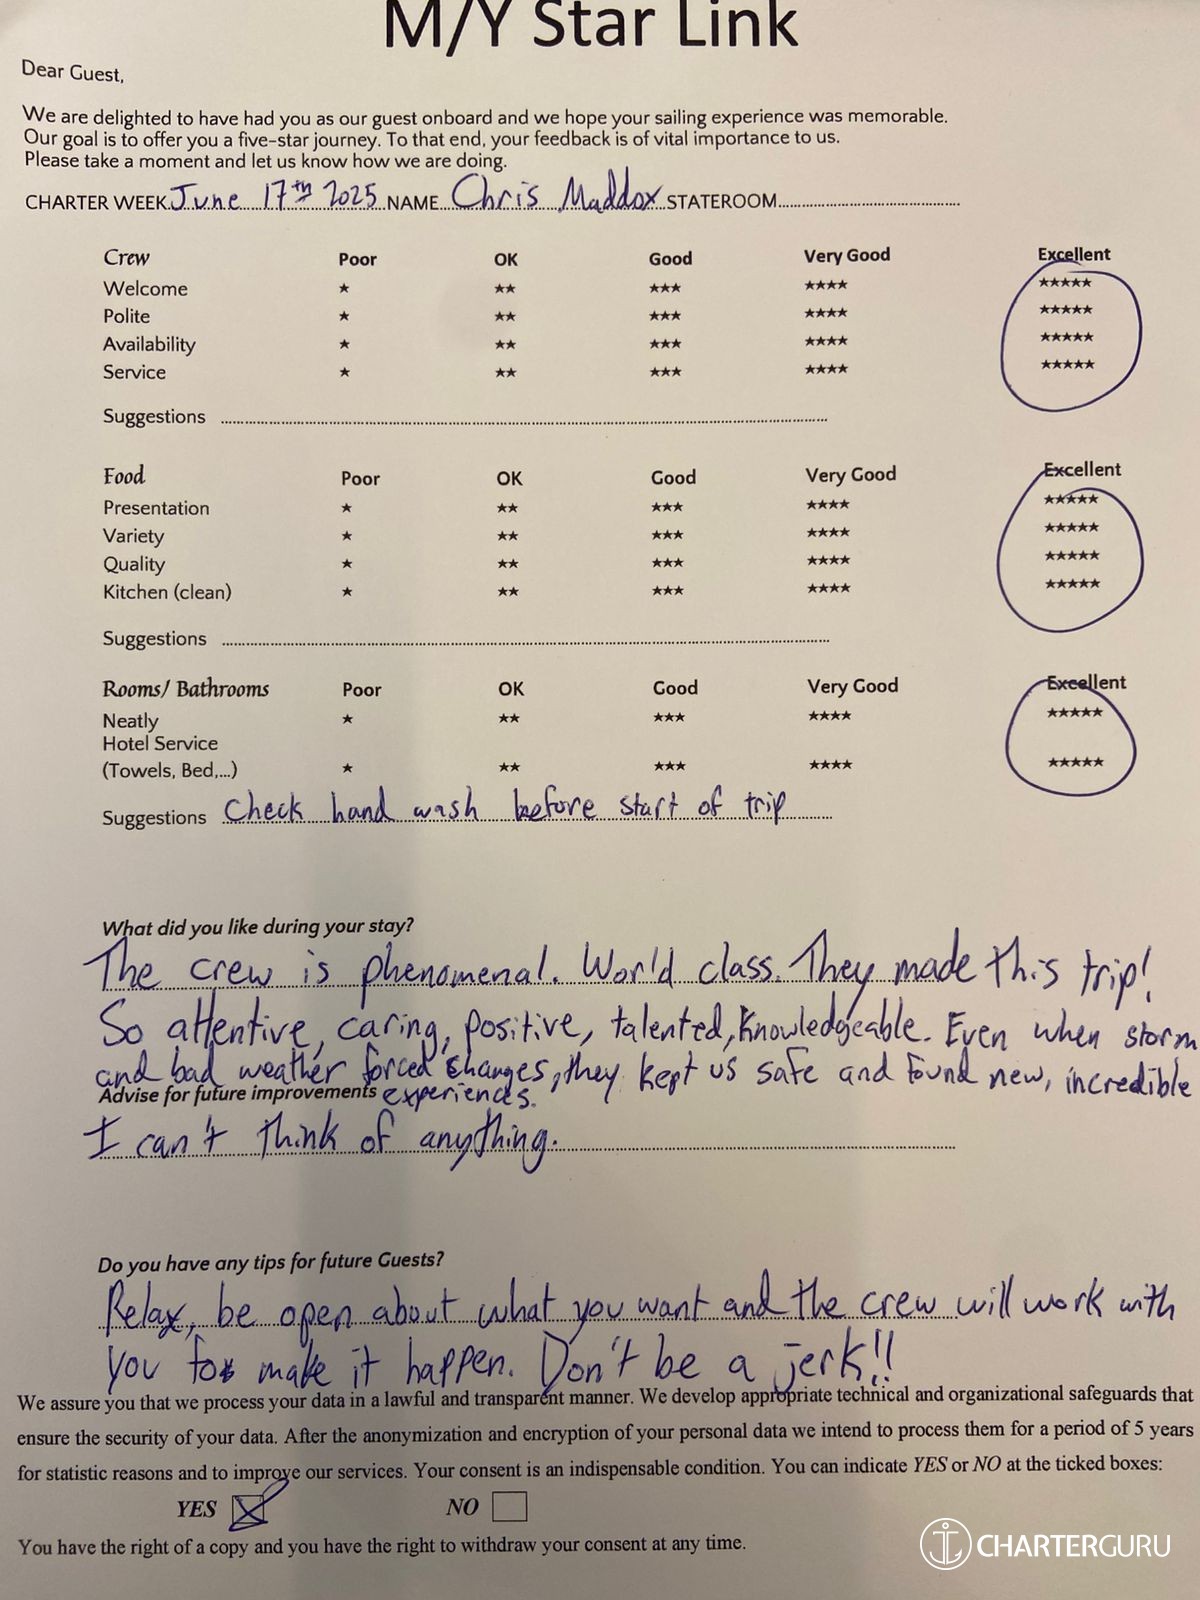 M/Y Star Link
Dear Guest,
We are delighted to have had you as our guest onboard and we hope your sailing experience was memorable.
Our goal is to offer you a five-star journey. To that end, your feedback is of vital importance to us.
Please take a moment and let us know how we are doing.
CHARTER WEEK June 17th 2025 NAME Chris Maddox STATEROOM
Crew Poor OK Good Very Good Excellent
Welcome ★ ★★ ★★★ ★★★★ ★★★★★
Polite ★ ★★ ★★★ ★★★★ ★★★★★
Availability ★ ★★ ★★★ ★★★★ ★★★★★
Service ★ ★★ ★★★ ★★★★ ★★★★★
Suggestions
Food Poor OK Good Very Good Excellent
Presentation ★ ★★ ★★★ ★★★★ ★★★★★
Variety ★ ★★ ★★★ ★★★★ ★★★★★
Quality ★ ★★ ★★★ ★★★★ ★★★★★
Kitchen (clean) ★ ★★ ★★★ ★★★★ ★★★★★
Suggestions
Rooms/ Bathrooms Poor OK Good Very Good Excellent
Neatly ★ ★★ ★★★ ★★★★ ★★★★★
Hotel Service
(Towels, Bed,...) ★ ★★ ★★★ ★★★★ ★★★★★
Suggestions Check hand wash before start of trip
What did you like during your stay?
The crew is phenomenal. World class. They made this trip!
So attentive, caring, positive, talented, knowledgeable. Even when storm
and bad weather forced changes, they kept us safe and found new, incredible
Advise for future improvements experiences.
I can't think of anything.
Do you have any tips for future Guests?
Relax, be open about what you want and the crew will work with
you to make it happen. Don't be a jerk!!
We assure you that we process your data in a lawful and transparent manner. We develop appropriate technical and organizational safeguards that
ensure the security of your data. After the anonymization and encryption of your personal data we intend to process them for a period of 5 years
for statistic reasons and to improve our services. Your consent is an indispensable condition. You can indicate YES or NO at the ticked boxes:
YES NO
You have the right of a copy and you have the right to withdraw your consent at any time.
CHARTERGURU